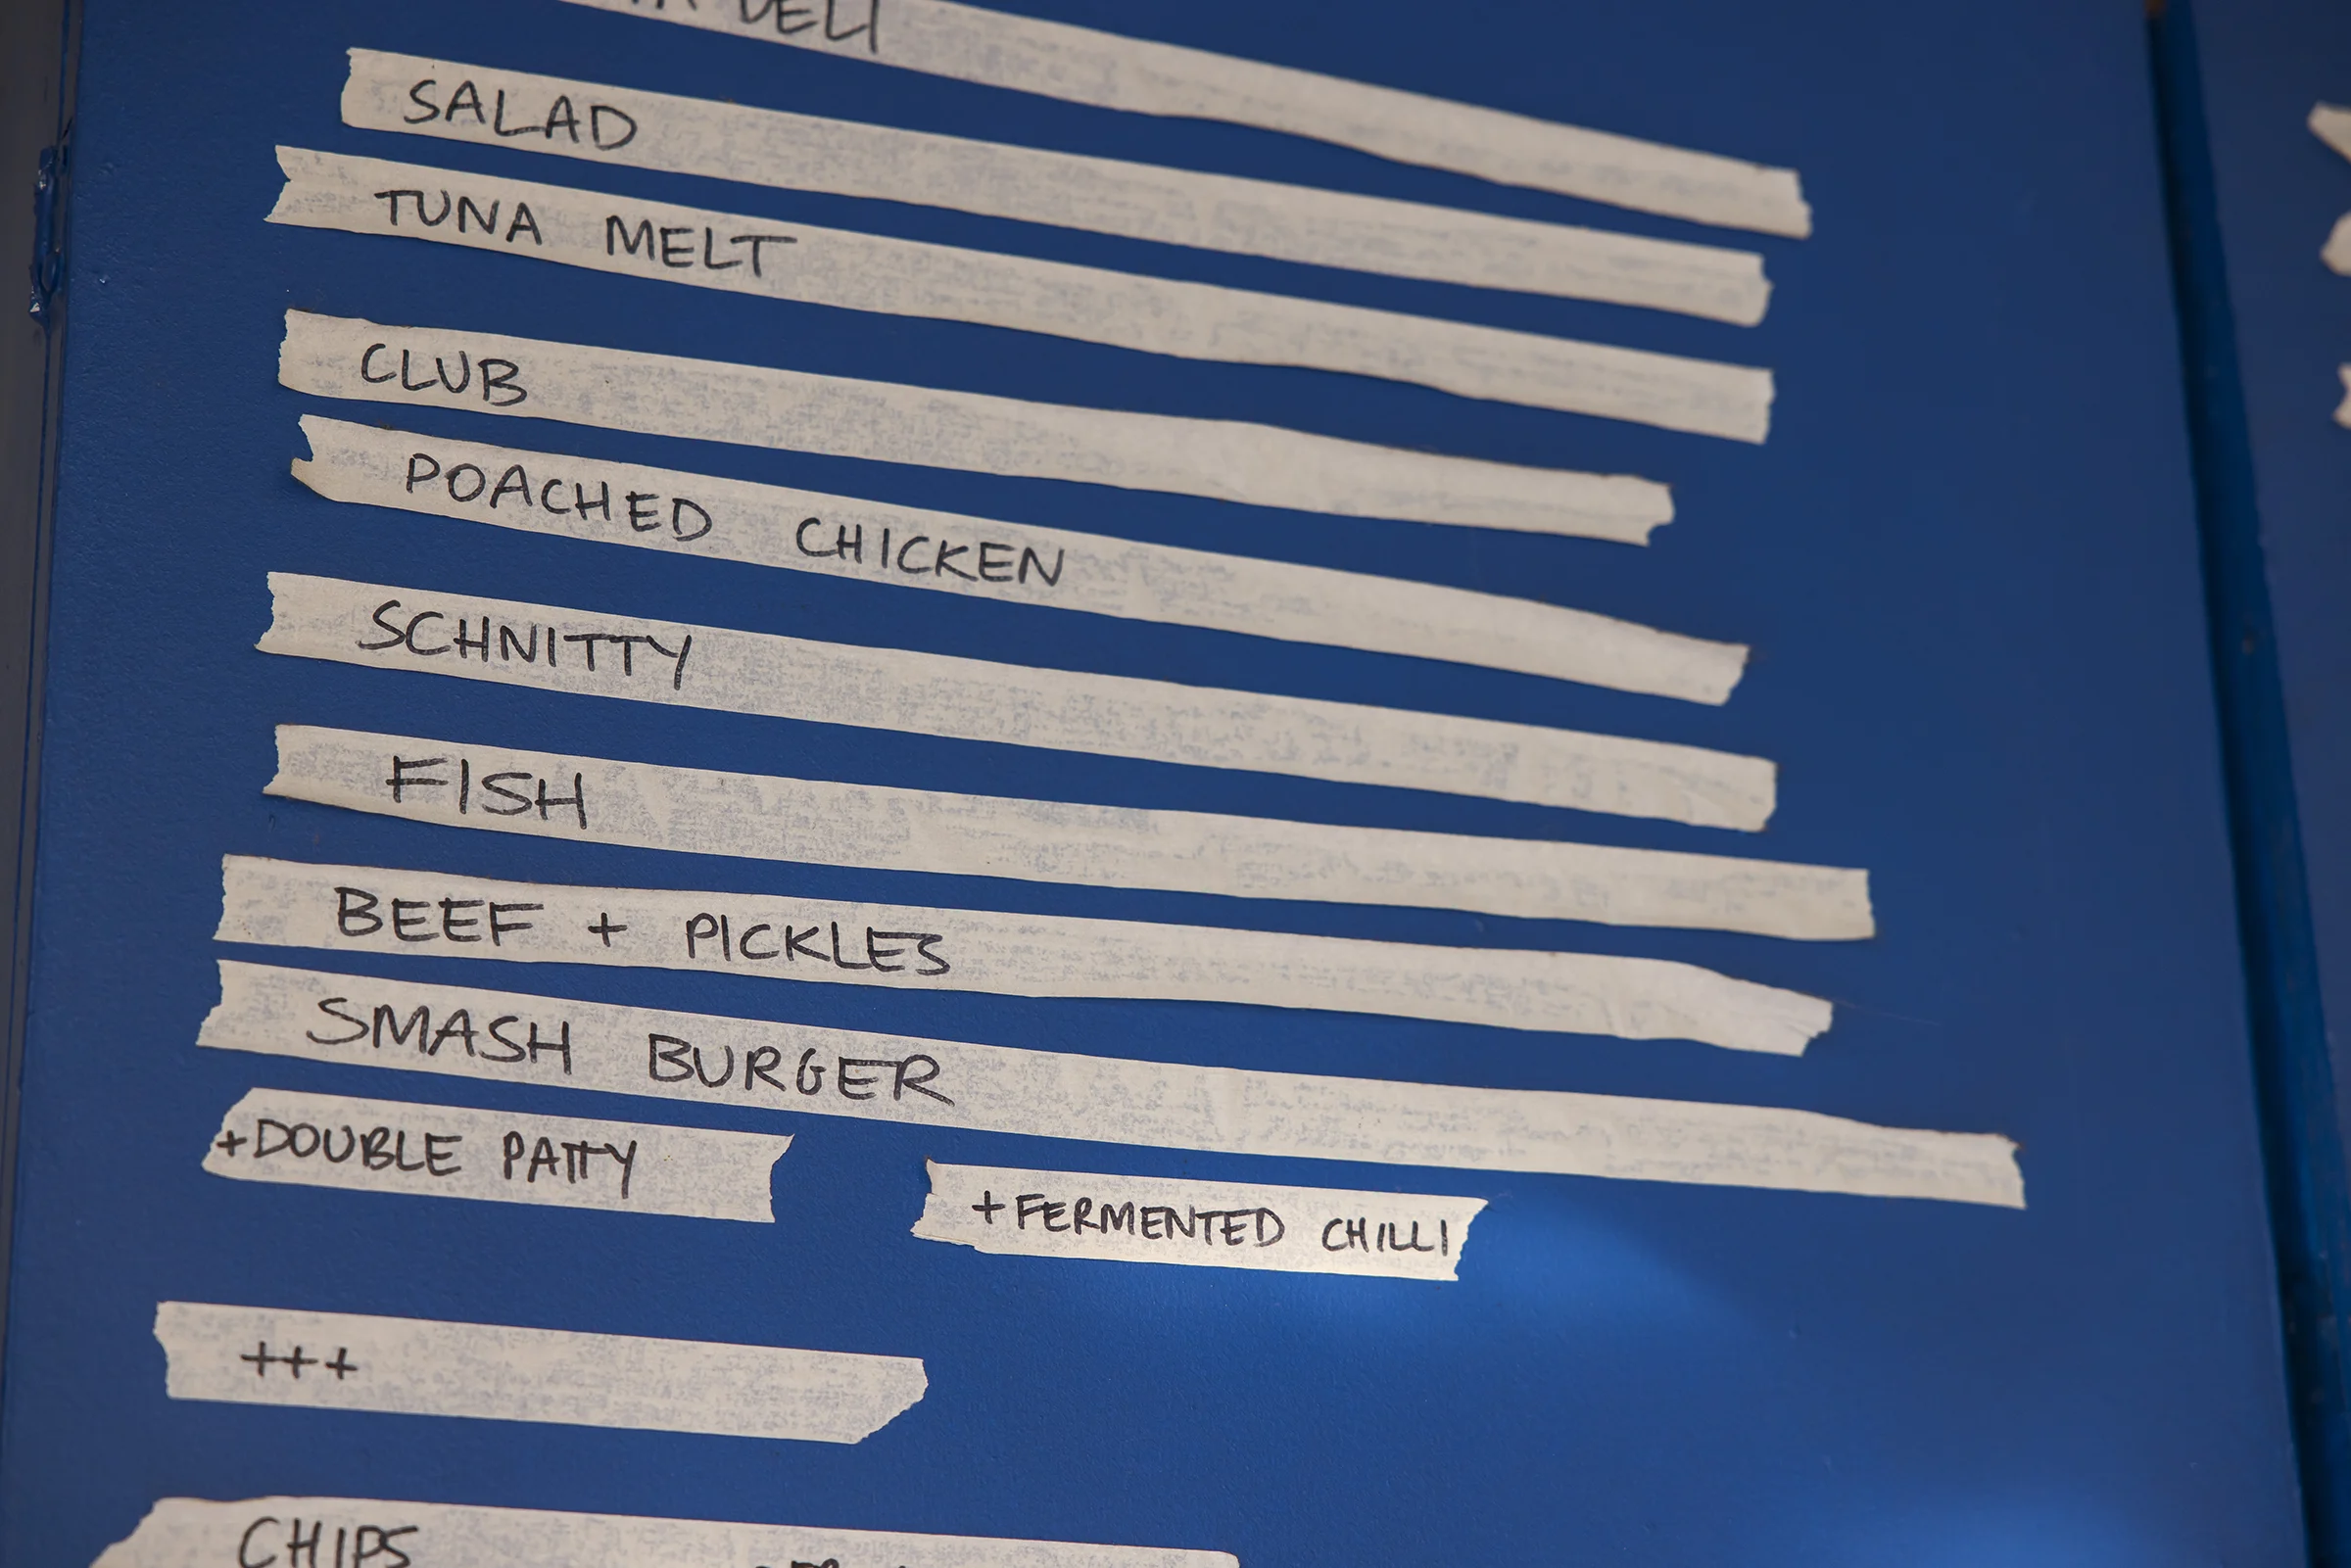 DELI
SALAD
TUNA MELT
CLUB
POACHED CHICKEN
SCHNITTY
FISH
BEEF + PICKLES
SMASH BURGER
+DOUBLE PATTY
+FERMENTED CHILLI
+++
CHIPS